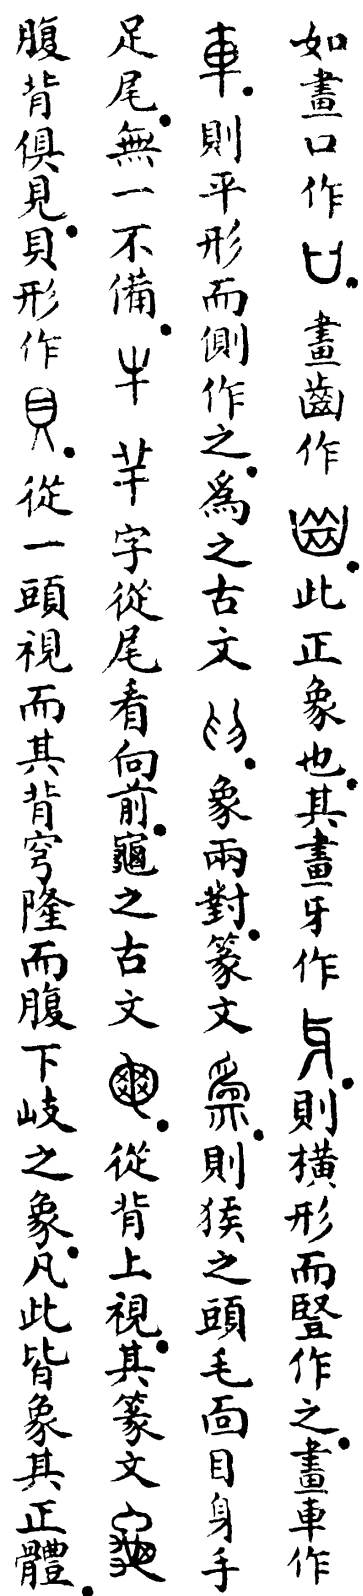 如畫口作。畫齒作。此正象也。其畫牙作。則橫形而豎作之。畫車作
車。則平形而側作之。爲之古文。象兩對。篆文。則猴之頭毛面目身手
足尾。無一不備。牛芈字從尾看向前。龜之古文。從背上視。其篆文
腹背俱見。貝形作。從一頭視而其背穹隆而腹下岐之象。凡此皆象其正體。